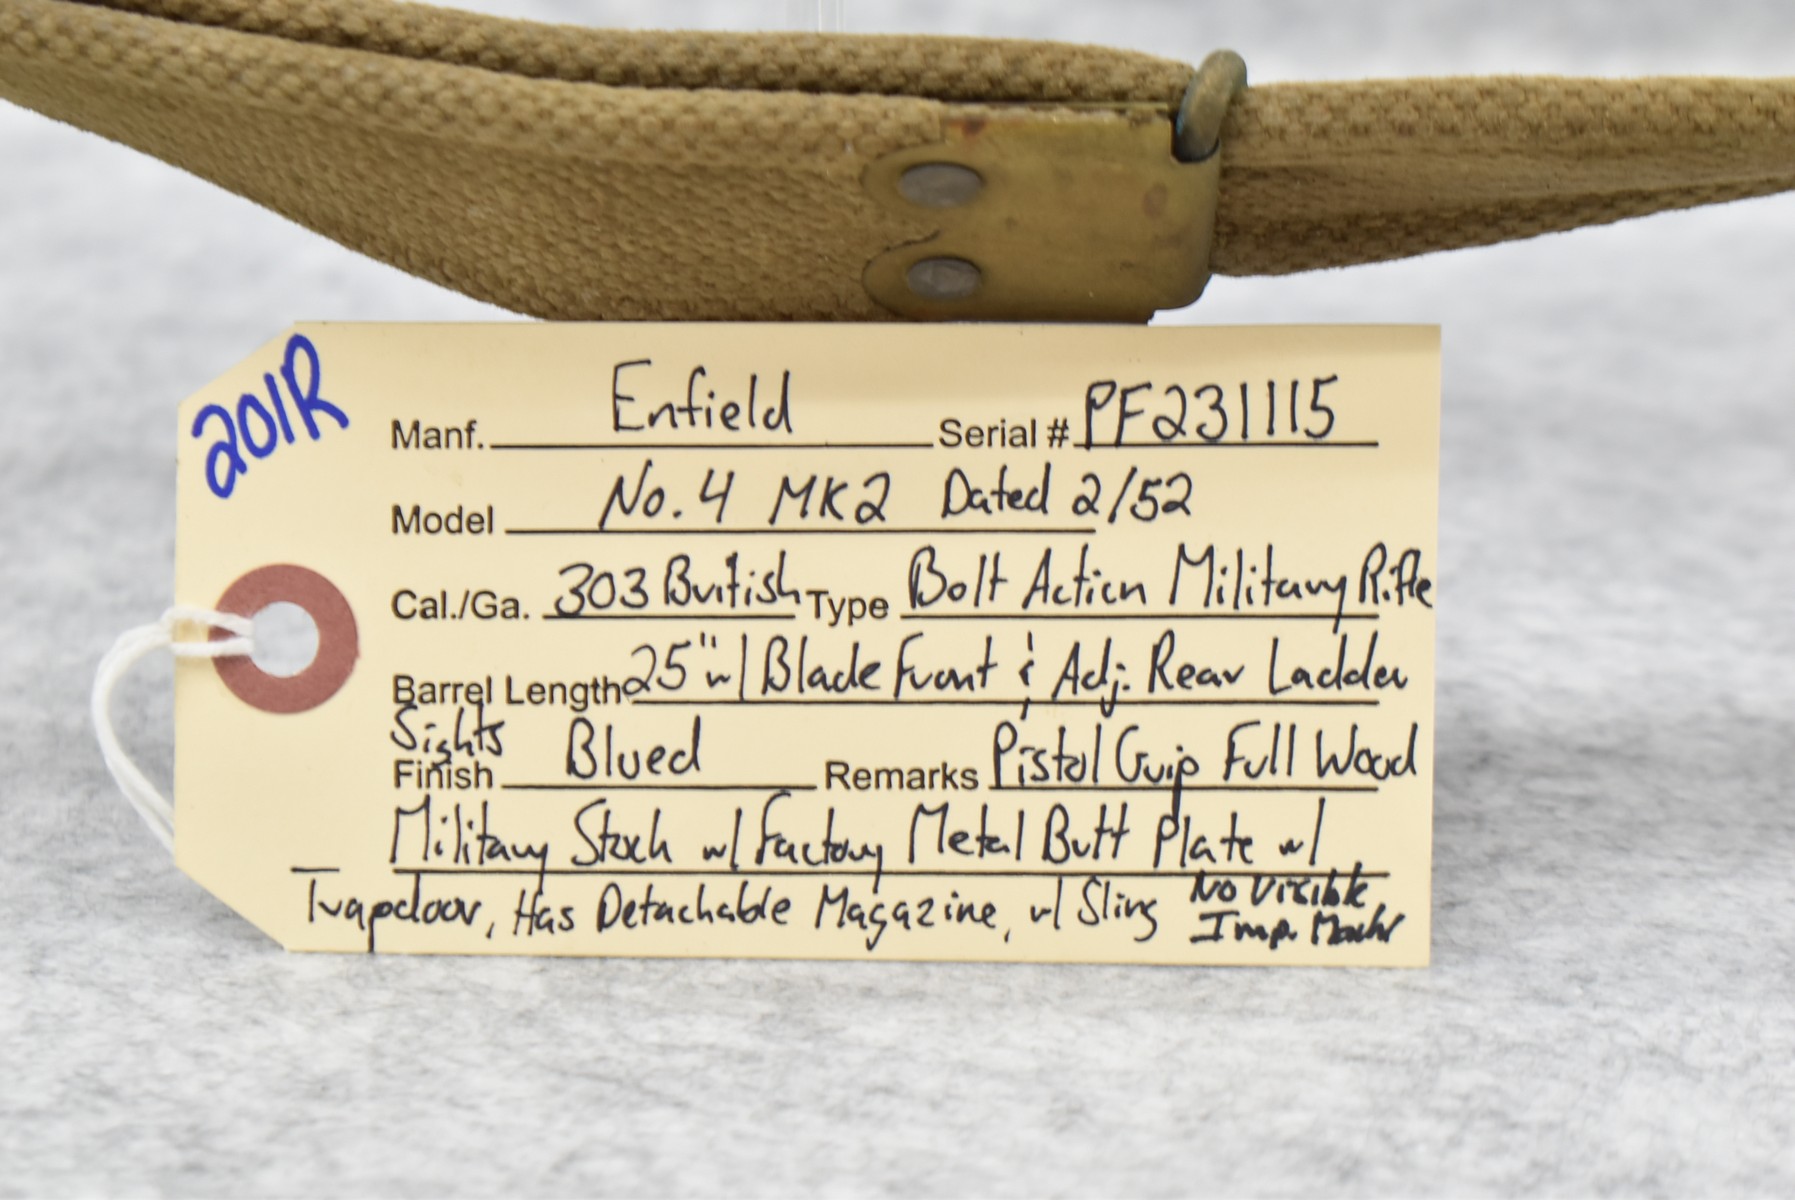 201R
Manf. Enfield Serial # PF231115
Model No. 4 MK2 Dated 2/52
Cal./Ga. 303 British Type Bolt Action Military Rifle
Barrel Length 25" w/ Blade Front & Adj. Rear Ladder
Sights
Finish Blued Remarks Pistol Grip Full Wood
Military Stock w/ Factory Metal Butt Plate w/
Trapdoor, Has Detachable Magazine, w/ Sling No Visible
Imp. Marks